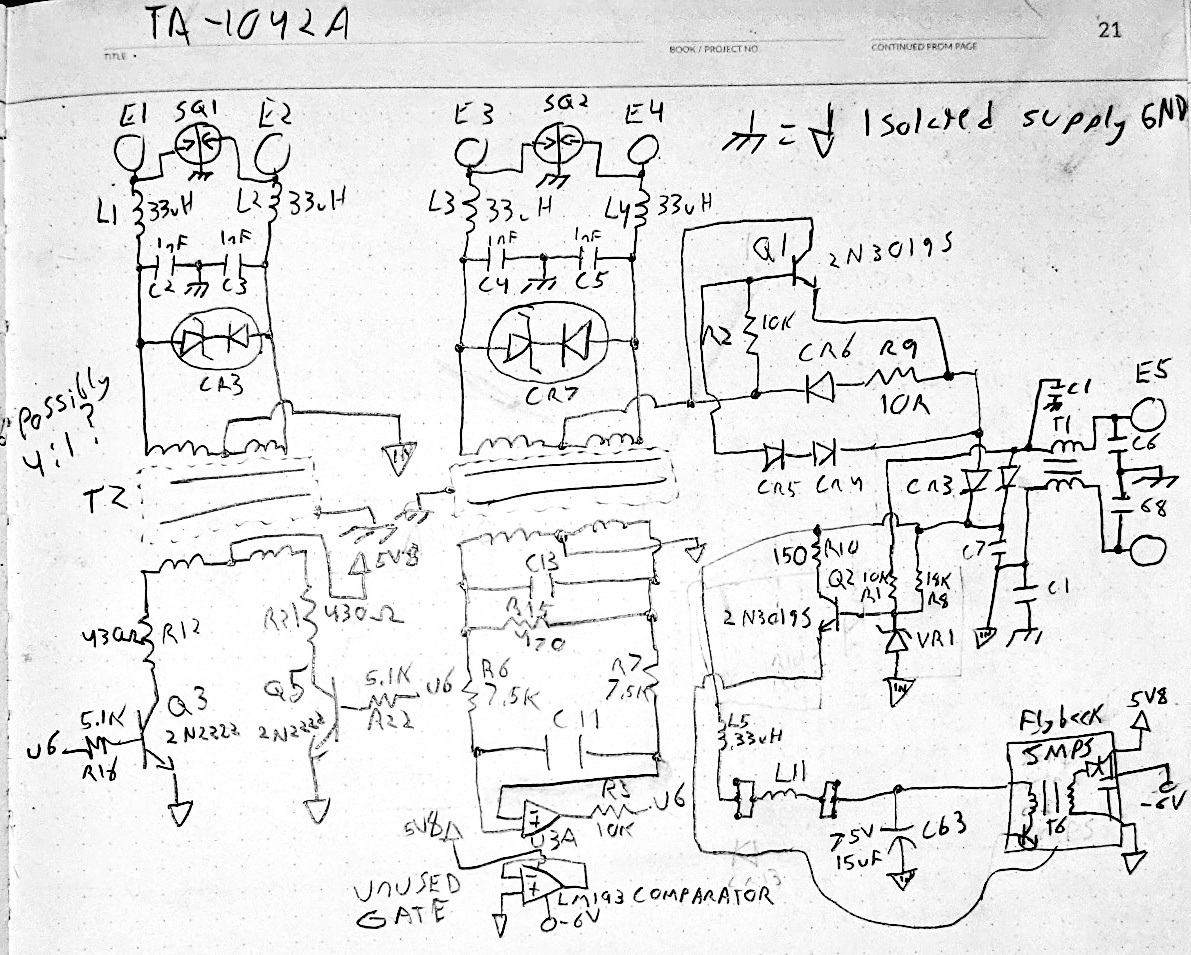 TA-1042A
21
TITLE
BOOK / PROJECT NO.
CONTINUED FROM PAGE
E1 SQ1 E2
E3 SQ2 E4
= Isolated supply GND
L1 33uH L2 33uH
L3 33uH L4 33uH
1nF 1nF
C2 C3
C4 C5
CR3
CR7
Q1 2N3019S
R2 10K
CR6 R9
10R
C1
E5
T1
C6
Possibly
4:1?
CR5 CR4
CR3
68
T2
5V8
C13
R15
470
150 R10
Q2 10K
R1
18K
R8
C7
C1
2N3019S
VR1
430Ω R12
R21 430Ω
R6
7.5K
R7
7.5K
5.1K U6
R22
Q3
2N2222
Q5
2N2222
5.1K
U6
R18
C11
L5
33uH
Flyback
SMPS
5V8
-6V
T6
L11
R3
10K
U6
5V8
U3A
75V
15uF
C63
UNUSED
GATE
LM193 COMPARATOR
-6V